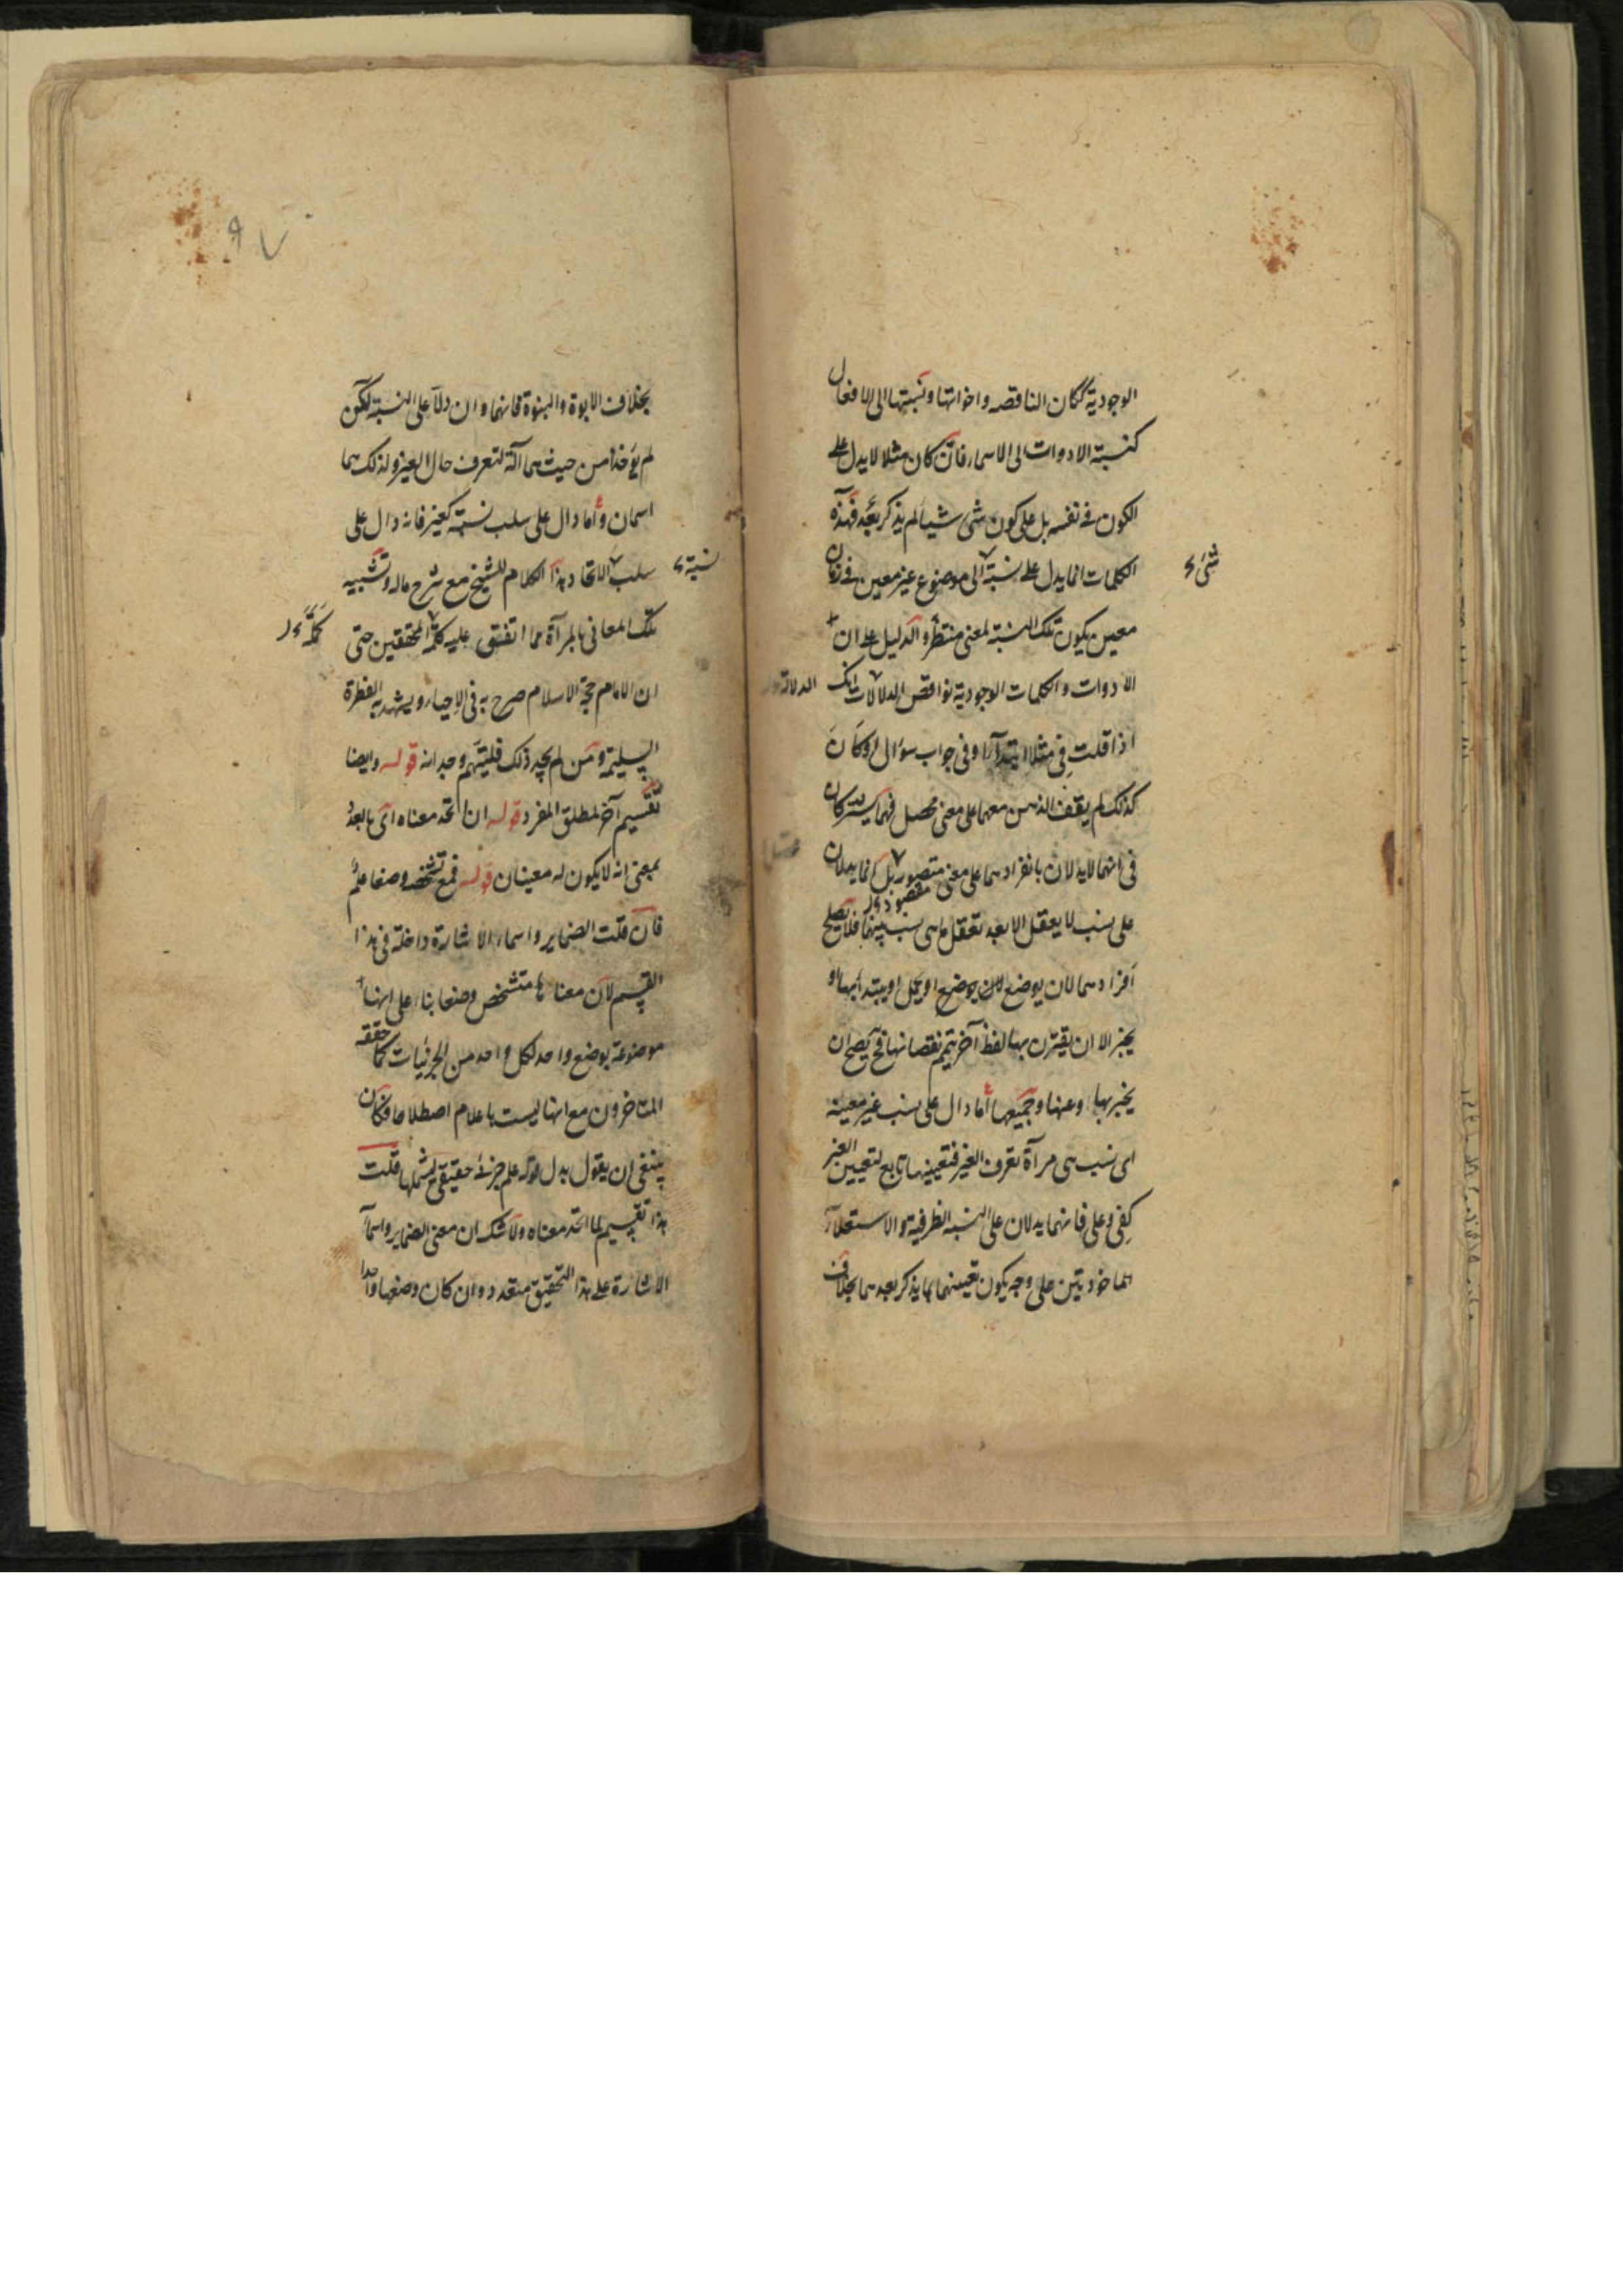 الوجودية ككان الناقصه واخواتها ونسبتها الى الافعال
كنسبة الادوات الى الاسماء فان كان مثلا لا يدل على
الكون فى نفسه بل على كون شى شيا لم يذكر بعد فهذه
الكلمات انما يدل على نسبة الى موضوع غير معين فى زمان
شئ
معين يكون تلك النسبة لمعنى منتظر والدليل على ان
الادوات والكلمات الوجودية نواقص الدلالات انك
الدلالة
اذا قلت فى مثلا ابتداء او فى جواب سؤال او كان
كذلك لم يقف الذهن معهما على معنى محصل فهما يشتركان
فى انهما لا يدلان بانفرادهما على معنى متصور بل انما يدلان
مقصود
على نسب لا يعقل الا بعد تعقل ما هى نسب بينها فلا يصلح
افرادهما لان يوضع لان يوضع او يحمل او يبتدأ بها او
يخبر الا ان يقترن بها لفظ آخر يتمم نقصانها فح يصح ان
يخبر بها وعنها وجميعها اما دال على نسب غير معينه
اى نسب هى مرآة تعرف الغير فتعيينها تابع لتعيين الغير
كفى وعلى فانهما يدلان على النسبه الظرفية والاستعلاء
الماخوذتين على وجه يكون تعينهما بما يذكر بعدهما بخلاف
٩٧
بخلاف الابوة والبنوة فانهما وان دلا على النسبة لكن
لم يؤخذا من حيث هما آلة لتعرف حال الغير ولذلك هما
اسمان واما دال على سلب نسبة كغير فانه دال على
سلب الاتحاد هذا الكلام للشيخ مع شرح ماله وتشبيه
نسبة
تلك المعانى بالمرآة مما اتفق عليه كلمة المحققين حتى
ان الامام حجة الاسلام صرح به فى الاحياء ويشهد به الفطرة
السليمة ومن لم يجد ذلك فليتهم وجدانه قوله وايضا
تقسيم آخر لمطلق المفرد قوله ان اتحد معناه اى بالعدد
بمعنى انه لا يكون له معنيان قوله فمع تشخصه وضعا علم
فان قلت الضماير واسماء الاشارة داخلة فى هذا
القسم لان معناها متشخص وضعا بناء على انها
موضوعة بوضع واحد لكل واحد من الجزئيات كما حققه
المتاخرون مع انها ليست باعلام اصطلاحا فكان
ينبغى ان يقول بدل قوله علم جزئى حقيقى ليشملها قلت
هذا تقسيم لما اتحد معناه ولا شك ان معنى الضماير واسماء
الاشارة على هذا التحقيق متعدد وان كان وضعها واحدا